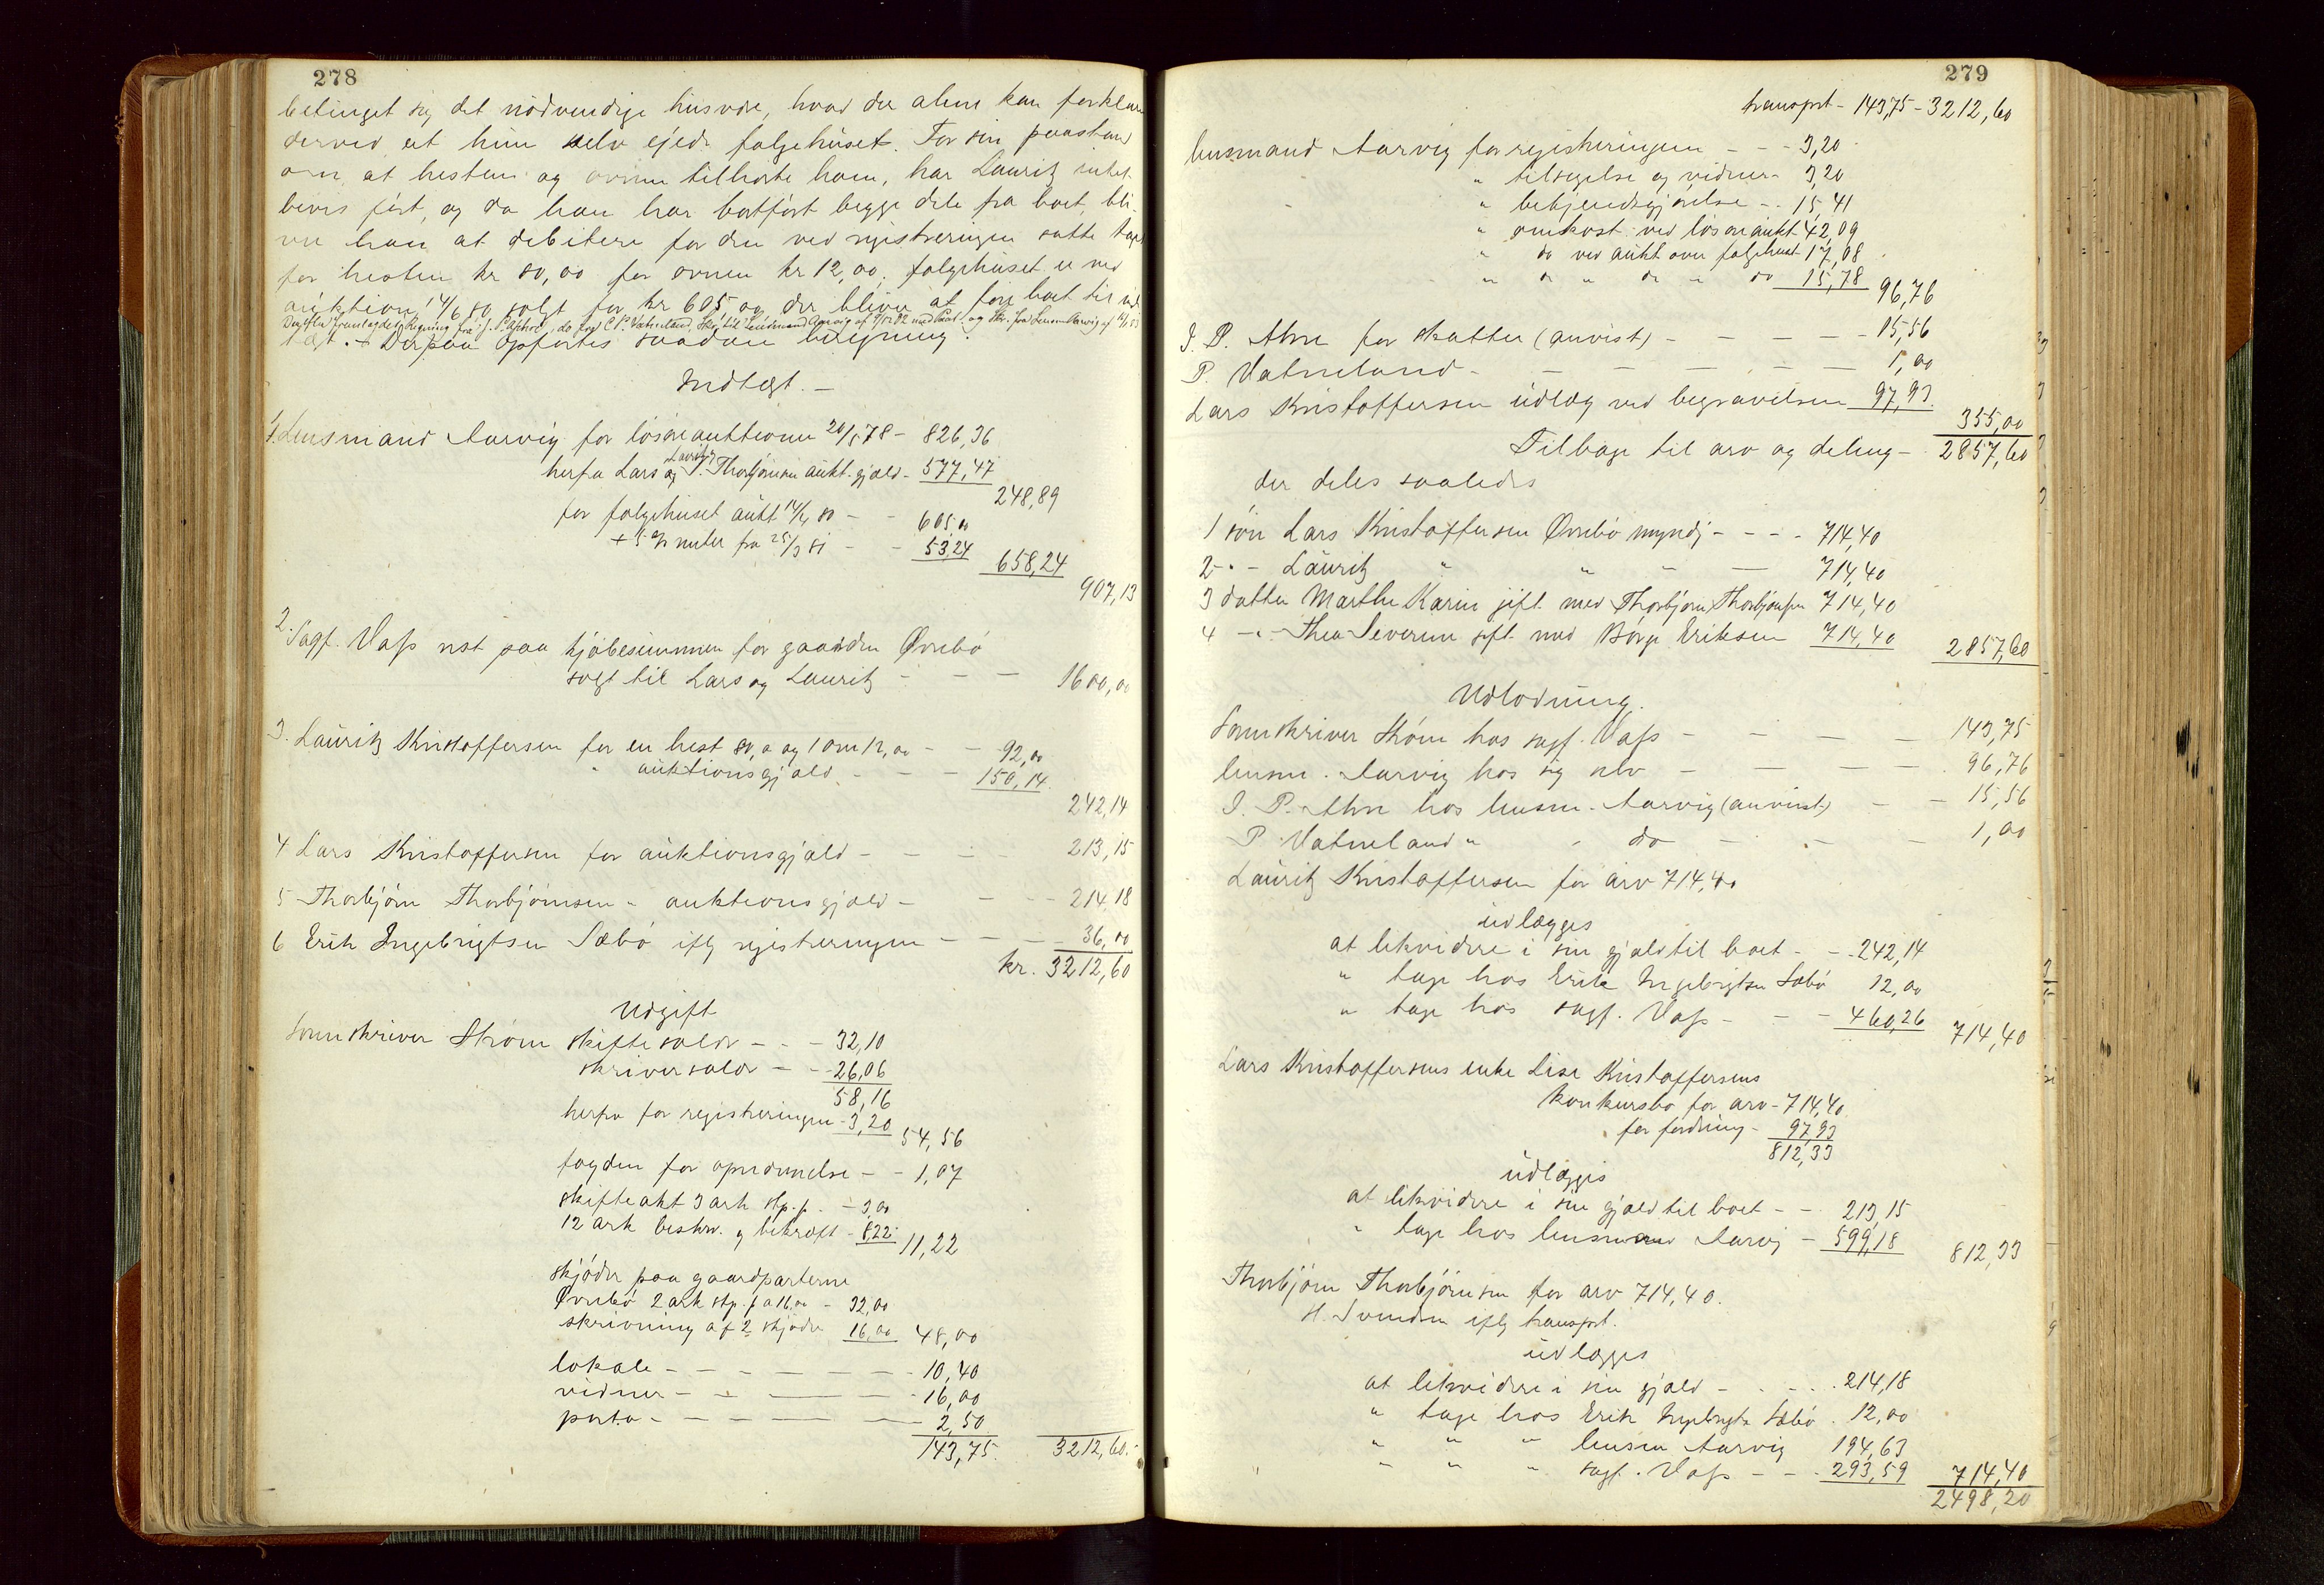 278
betinget sig det nödvendige husvære, hvad der alene kan forklare
derved at hun selv ejede folgehuset. For sin paastand
om at hesten og ovnen tilhörte ham, har Lauritz intet
bevis fört, og da han har bortfört begge dele fra boet, bli-
ver han at debitere for den ved registreringen satte taxt
for hesten kr 80,00 for ovnen kr 12,00. folgehuset er ved
auktion 14/6 80 solgt for kr 605 og der bliver at före boet til ind
tægt. + Derpaa opfortes saadan beregning:
Indtægt. –
1. Lensmand Aarvig for lösöreauktionen 20/5 78 – 826,36
herfra Lars og Lauritz T. Thorbjörnsens aukt. gjæld – 577,47
248,89
for folgehuset aukt 14/6 80 – – 605,00
+ 5 % renter fra 25/3 81 – – 53,24
658,24
907,13
2. Sagf. Vass rest paa kjöbesummen for gaarden Ørnebö
solgt til Lars og Lauritz – – – 1600,00
3. Lauritz Kristoffersen for en hest 80,00 og 1 ovn 12,00 – – 92,00
" auktionsgjæld – – – 150,14
242,14
4 Lars Kristoffersen for auktionsgjæld – – – – 213,15
5 Thorbjörn Thorbjörnsen – auktionsgjæld – – – – 214,18
6 Erik Ingebrigtsen Sæbö iflg registreringen – – – 36,00
kr. 3212,60
Udgift
Sorenskriver Ström skiftesalær – – – 32,10
skriversalær – – – 26,06
58,16
herfra for registreringen – 3,20
54,56
fogden for opnævnelse – – 1,07
skifteakt 3 ark stp. p. – 3,00
12 ark beskr. og bekræft – 8,22
11,22
skjöder paa gaardparterne
Ørnebö 2 ark stp. p a 16,00 – 32,00
skrivning af 2 skjöder 16,00
48,00
lokale – – – – – 10,40
vidner – – – – – 16,00
porto – – – – – 2,50
143,75. 3212,60.–
279
transport – 143,75 – 3212,60
lensmand Aarvig for registreringen – – – 3,20
" tilsigelse og vidner – 3,20
" bekjendtgjörelse – – 15,41
" omkost. ved lösöreaukt. 42,09
" do ved aukt over folgehuset 17,08
" do " do " do 15,78
96,76
I. P. Ahre for skatter (anvist) – – – – – 15,56
P. Vatneland – – – – – – 1,00
Lars Kristoffersen udlæg ved begravelsen 97,93.
355,00
Tilbage til arv og deling – 2857,60
der deles saaledes
1 sön Lars Kristoffersen Ørnebö myndig – – – – 714,40
2 – " – Lauritz " " – – 714,40
3 datter Marthe Karin gift med Thorbjörn Thorbjörnsen 714,40
4 – " – Thea Severine gift med Börge Eriksen 714,40
2857,60
Udlodning.
Sorenskriver Ström hos sagf. Vass – – – – 143,75
lensm. Aarvig hos sig selv – – – – 96,76
I. P. Ahre hos lensm. Aarvig (anvist) – – 15,56
P. Vatneland " – do – – – 1,00
Lauritz Kristoffersen for arv 714,40
udlægges
at likvidere i sin gjæld til boet – – 242,14
" tage hos Erik Ingebrigtsen Sæbö 12,00
" tage hos sagf. Vass – – – 460,26
714,40
Lars Kristoffersens enke Lise Kristoffersens
konkursbo for arv – 714,40
for fordring – 97,93
812,33
udlægges
at likvidere i sin gjæld til boet – – 213,15
" tage hos lensmand Aarvig – 599,18
812,33
Thorbjörn Thorbjörnsen for arv 714,40.
H. Svendsen iflg transport.
udlægges
at likvidere i sin gjæld – – – – 214,18
" tage hos Erik Ingebrigts. Sæbö. 12,00
" " " lensm Aarvig 194,63
" " " sagf. Vass – – – 293,59
714,40
2498,20